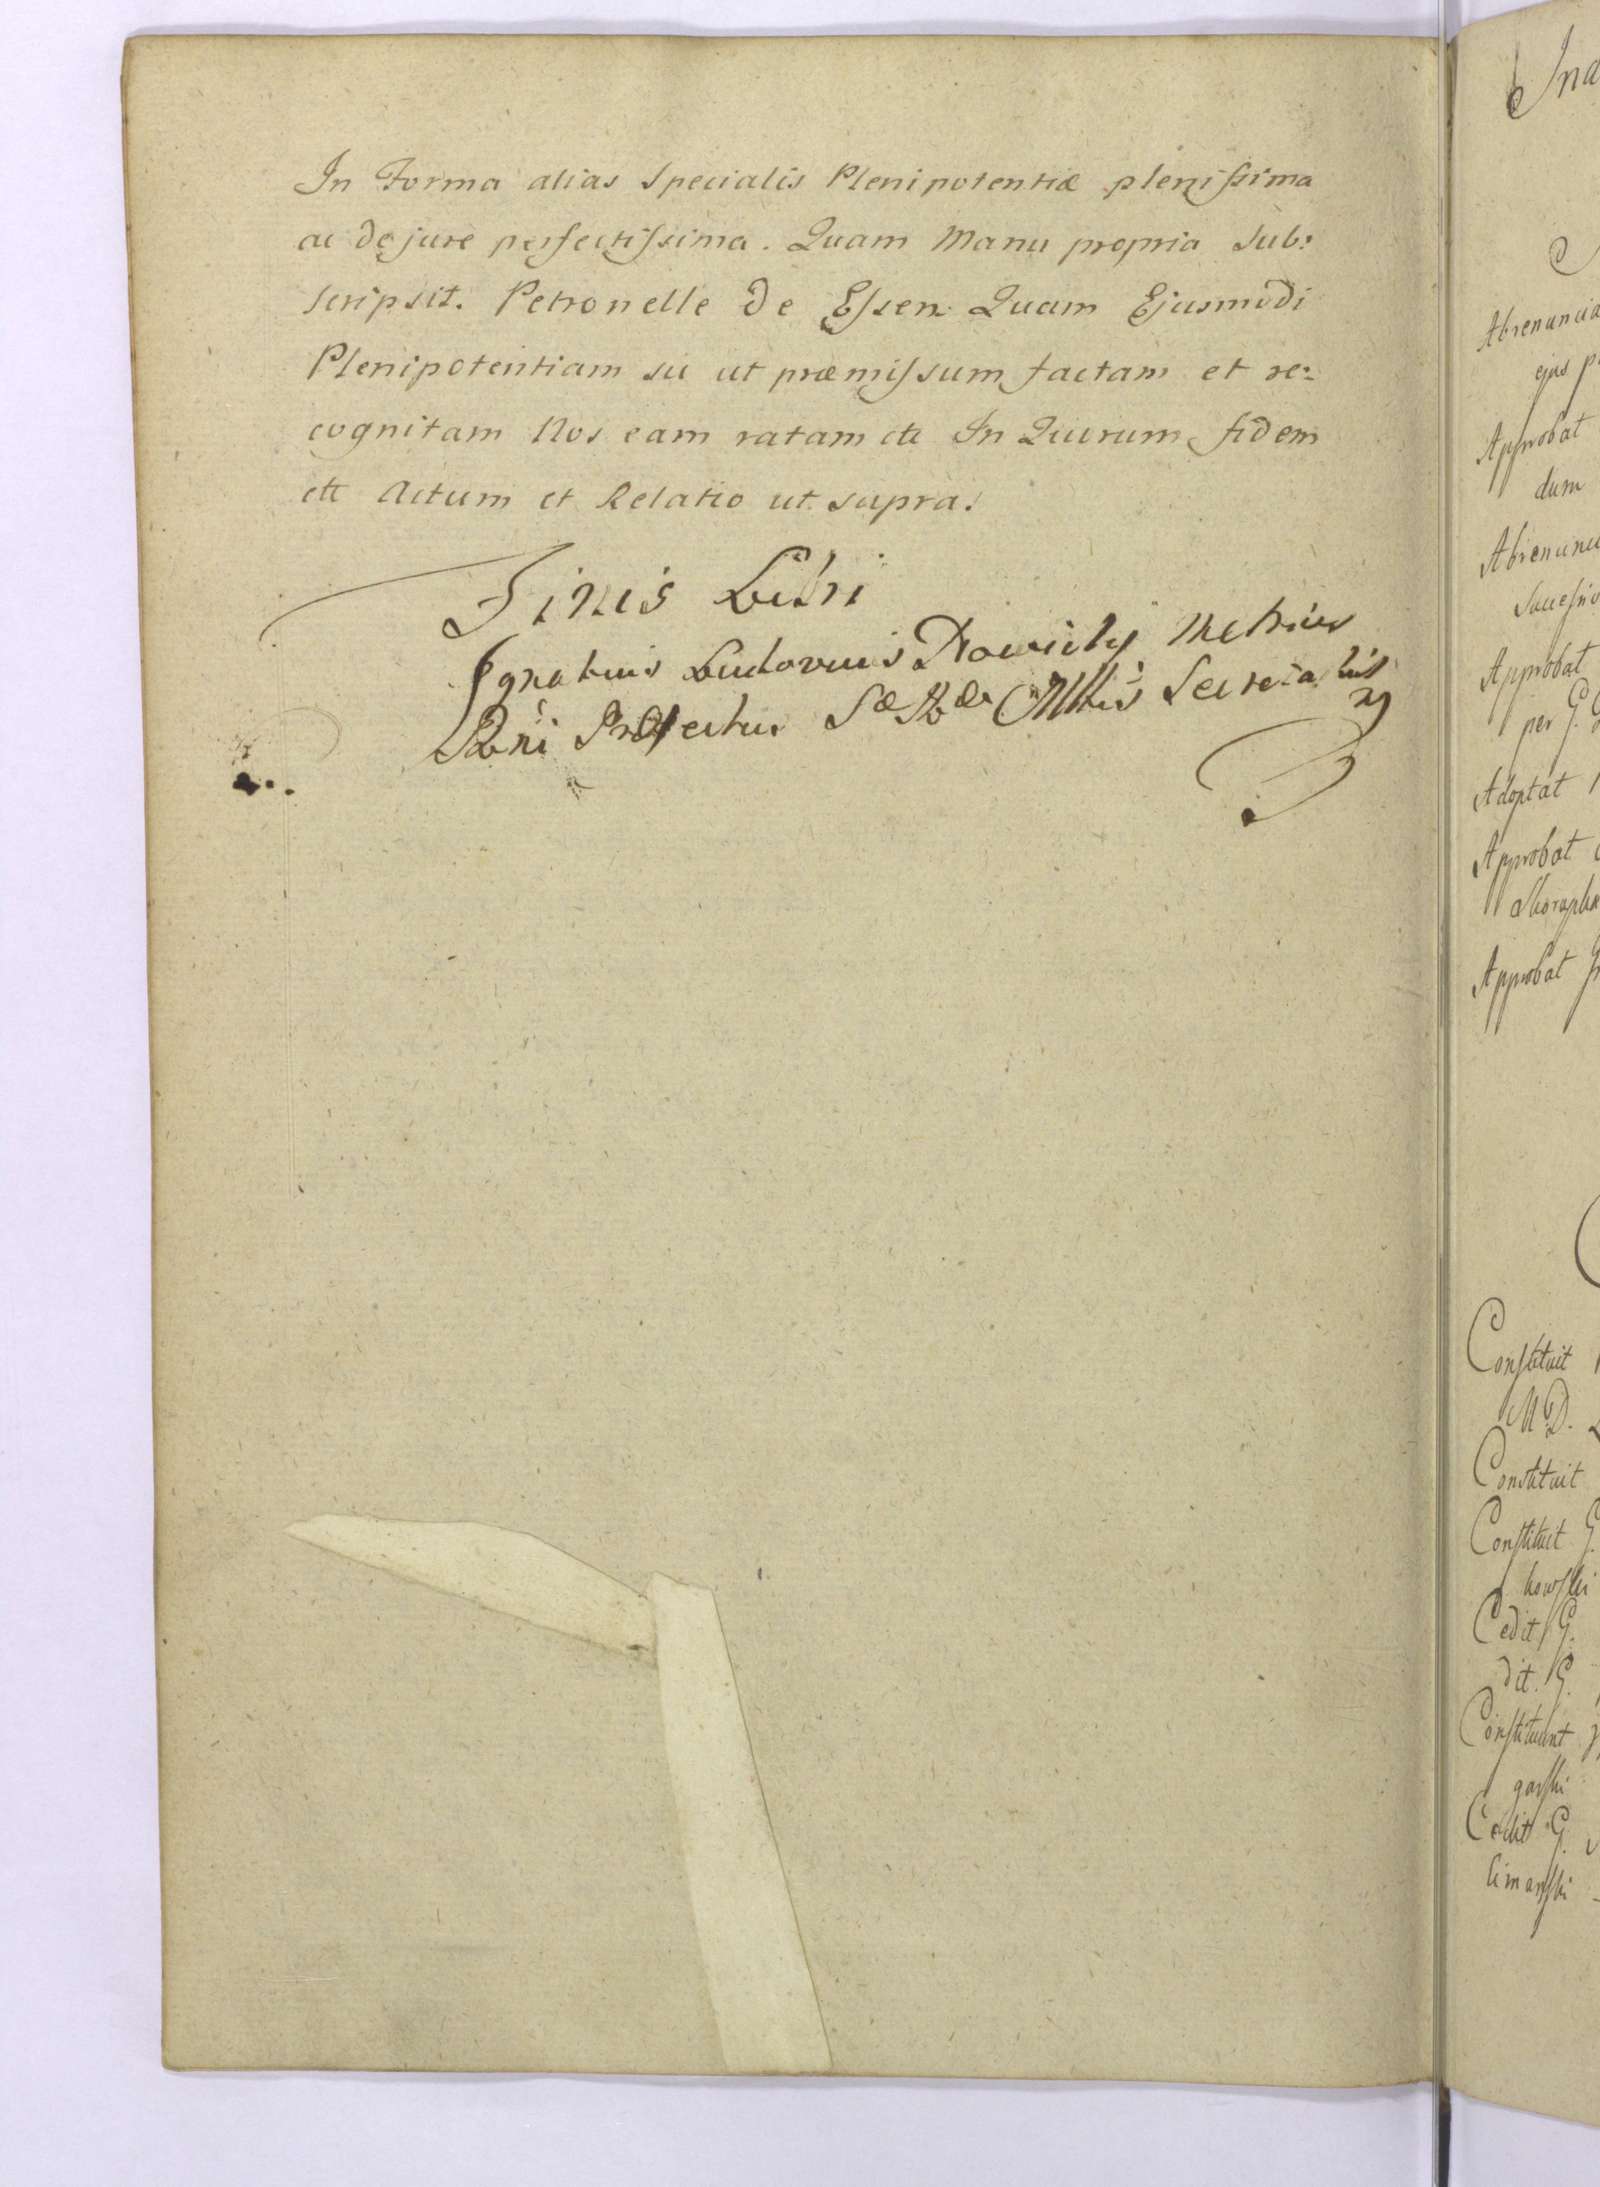 In Forma alias Specialis Plenipotentiæ plenissima
ac de jure perfectissima. Quam Manu propria Sub:
scripsit. Petronelle de Essen Quam Ejusmodi
Plenipotentiam sic ut præmissum factam et re:
cognitam Nos eam ratam etc In Quorum fidem
etc Actum et Relatio ut supra.
Finis Libri
Ignatius Ludovicus Nowicky Metrices
Rni Præfectus Sæ Ræ Mttis Secretarius
Abrenuncia
ejus
Approbat
dum
Abrenunci
Approbat
per G.
Adoptat
Approbat
Approbat
Constituit
M D.
Constituit
Constituit G.
kowski
Cedit G.
dit. G.
Constituunt
garski
Cedit G.